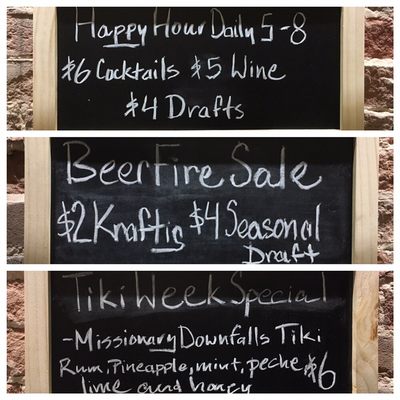 Happy Hour Daily 5-8
$6 Cocktails $5 Wine
$4 Drafts
Beer Fire Sale
$2 Kraftig $4 Seasonal
Draft
Tiki Week Special
-Missionary Downfalls Tiki
Rum, Pineapple, mint, peche $6
lime and honey